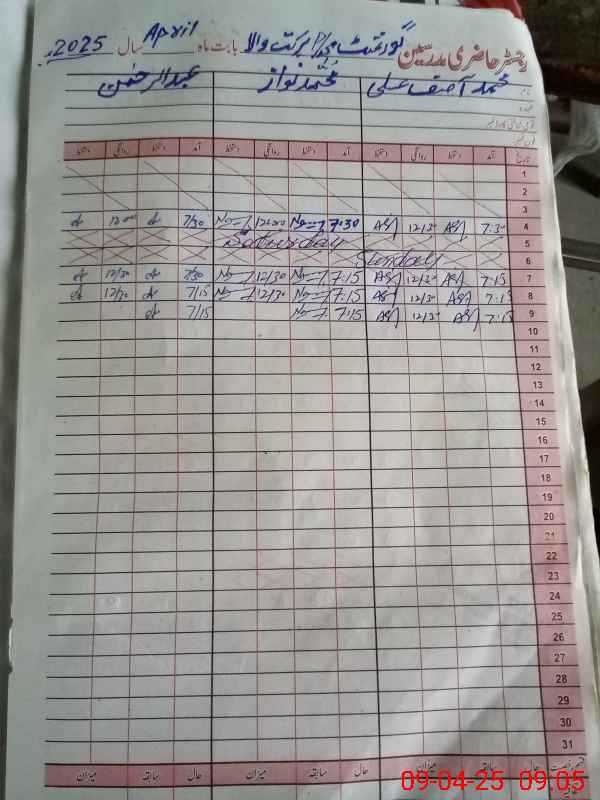 رجسٹر حاضری مدرسین گورنمنٹ برکت والا بابت ماہ April سال 2025
نام محمد آصف علی محمد نواز عبدالرحمٰن
عہدہ
فون نمبر
تاریخ آمد دستخط روانگی دستخط آمد دستخط روانگی دستخط آمد دستخط روانگی دستخط
1
2
3
4 7:30 12/30 7:30 7/30
5 Saturday
6 Sunday
7 7:15 12/30 7:15 12/30 7/30 12/30
8 7:15 12/30 7:15 12/30 7/15 12/30
9 7:15 12/30 7:15 7/15
10
11
12
13
14
15
16
17
18
19
20
21
22
23
24
25
26
27
28
29
30
31
قسم رخصت حال سابقہ میزان حال سابقہ میزان حال سابقہ میزان
09-04-25 09:05